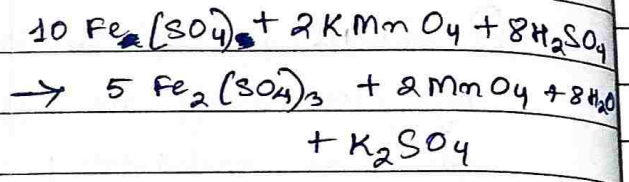 10 Fe (SO4) + 2 K Mn O4 + 8H2SO4
→ 5 Fe2 (SO4)3 + 2 Mn O4 + 8 H2O
+ K2SO4